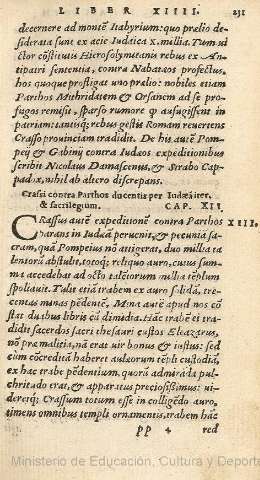 LIBER XIIII. 231
decernere ad montē Itabyrium: quo prelio de-
siderata sunt ex acie Iudaica x. millia. Tum ui
ctor cōstitutis Hierosolymitanis rebus ex An-
tipatri sententia, contra Nabatæos profectus,
hos quoque profligat uno prælio: nobiles etiam
Parthos Mithridatem & Orsanem ad se pro-
fugos remisit, sparso rumore q̃ aufugissent in
patriam: tantisq; rebus gestis Romam reuertens
Crasso prouinciam tradidit. De his autē Pom-
peij & Gabinij contra Iudæos expeditionibus
scribit Nicolaus Damascenus, & Strabo Cap-
padox, nihil ab altero discrepans.
Crassi contra Parthos ducentis per Iudæā iter,
& sacrilegium. CAP. XII
CRassus autē expeditionē contra Parthos XIII.
parans in Iudæā peruenit, & pecuniā sa-
cram, quā Pompeius nō attigerat, duo millia ta
lentorū abstulit, totoq; reliquo auro, cuius sum-
mi accedebat ad octo talētorum millia tēplum
spoliauit. Tulit etiā trabem ex auro solidā, tre-
centas minas pēdentē. Mina autē apud nos cō
stat duabus libris cū dimidia. Hāc trabē ei tra-
didit sacerdos sacri thesauri custos Eleazarus,
nō præ malitia, nā erat uir bonus & iustus: sed
cùm cōcreditā haberet aulæorum tēpli custodiā,
ex hac trabe pēdentium, quorū admirāda pul-
chritudo erat, & apparatus preciosissimus: ui-
deretq; Crassum totum esse in colligēdo auro,
timens omnibus templi ornamentis, trabem hāc
pp 4 red
Ministerio de Educación, Cultura y Deporte